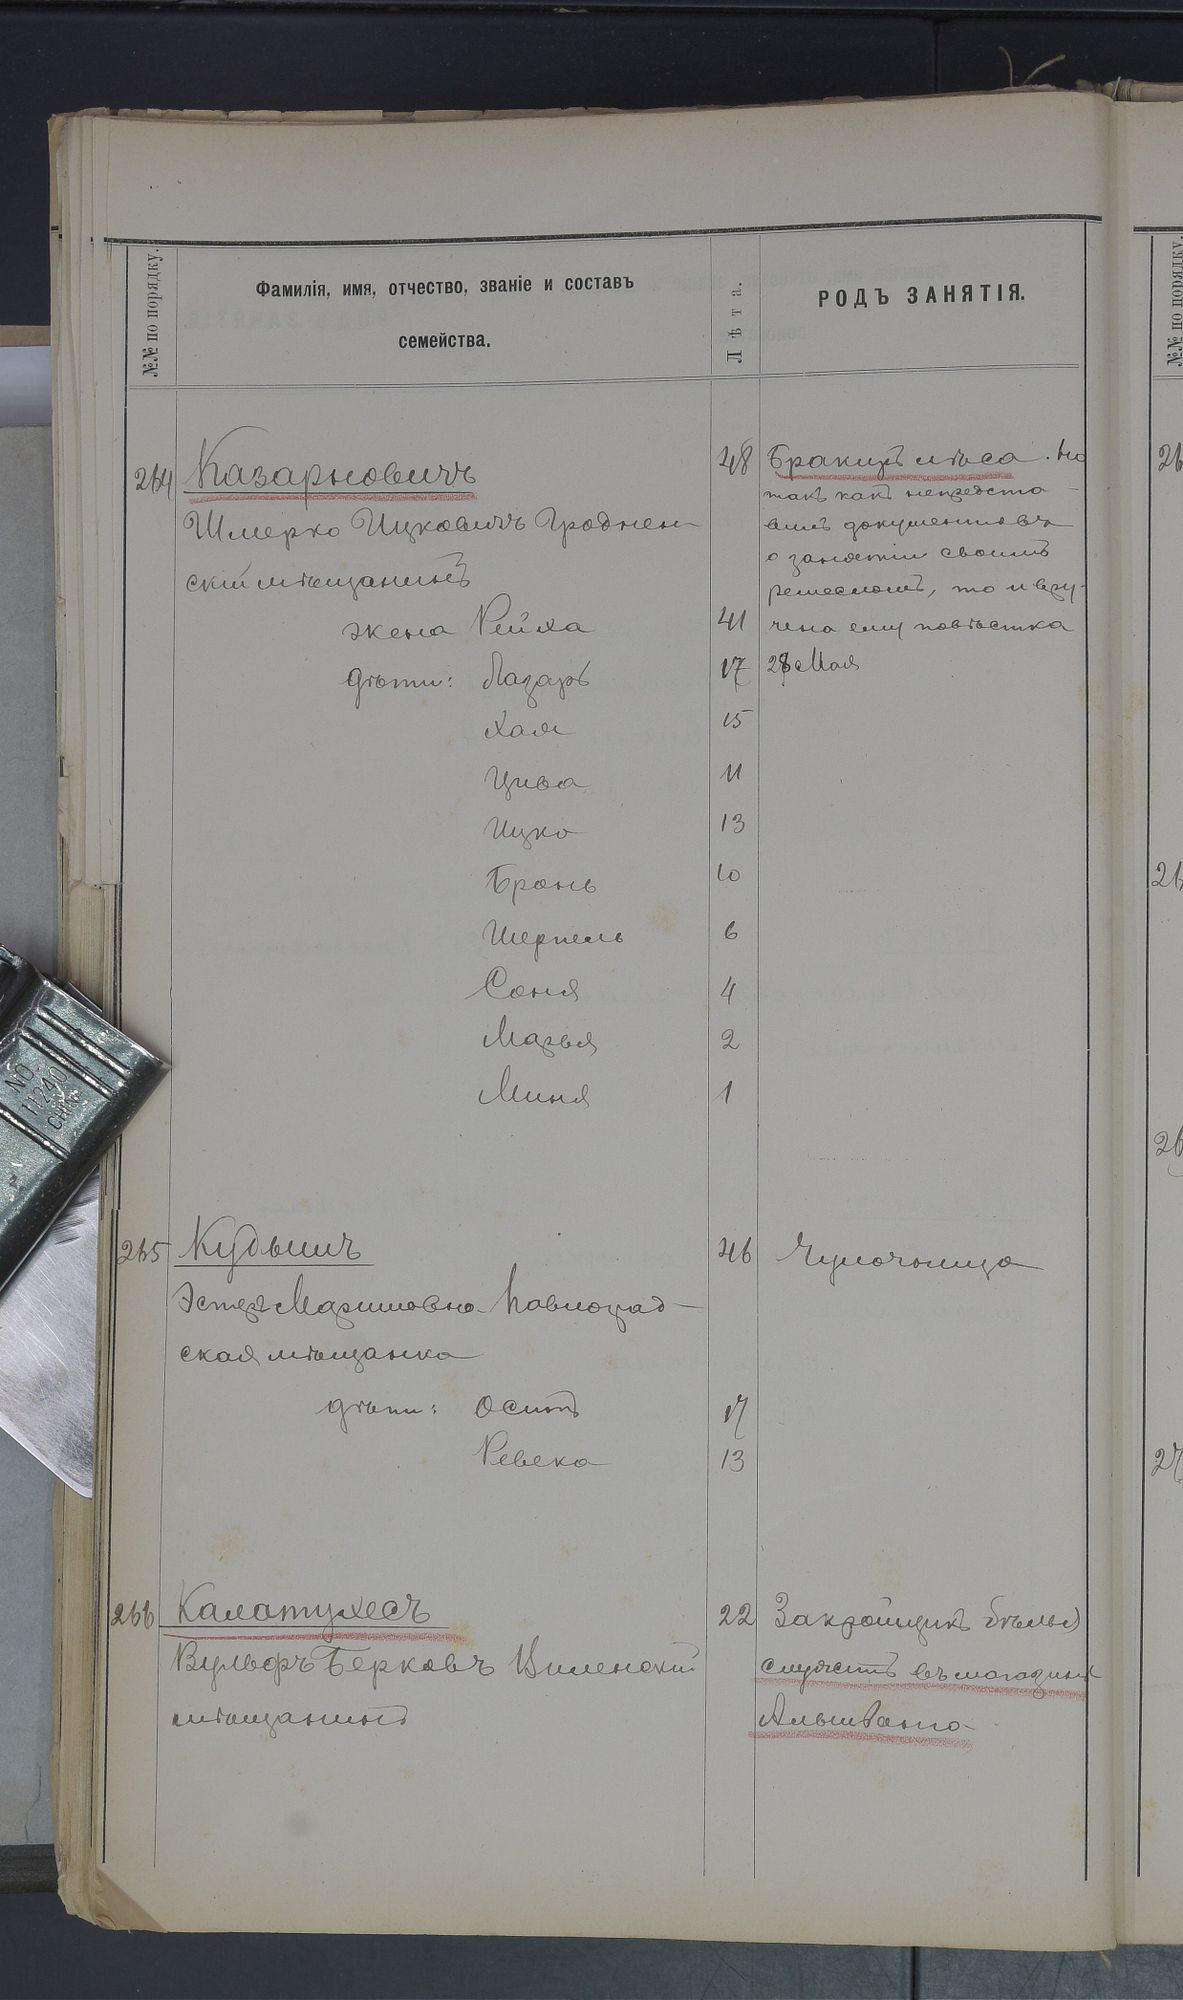 №№ по порядку.
Фамилія, имя, отчество, званіе и составъ
семейства.
Лѣта.
РОДЪ ЗАНЯТІЯ.
№№ по порядку.
264 Казарновичъ 48 Бракиръ лѣса. Но
такъ какъ непредста-
вилъ документовъ
Шмерко Ицковичъ Гроднен-
о занятіи своимъ
скій мѣщанинъ
ремесломъ, то и вру-
жена Рейха 41 чена ему повѣстка
дѣти: Лазарь 17 28 Мая
Хая 15
Цива 11
Ицко 13
Бронь 10
6
Соня 4
Марья 2
Миня 1
265 46 Чулочница
Эстеръ Павлоград-
ская мѣщанка
дѣти: Осипъ 17
Ревека 13
266 Калатухесъ 22 Закройщикъ бѣлья
Вульфъ Берковъ Виленскій служитъ въ магазинѣ
мѣщанинъ Альшванга
NO.
11240
CHINA